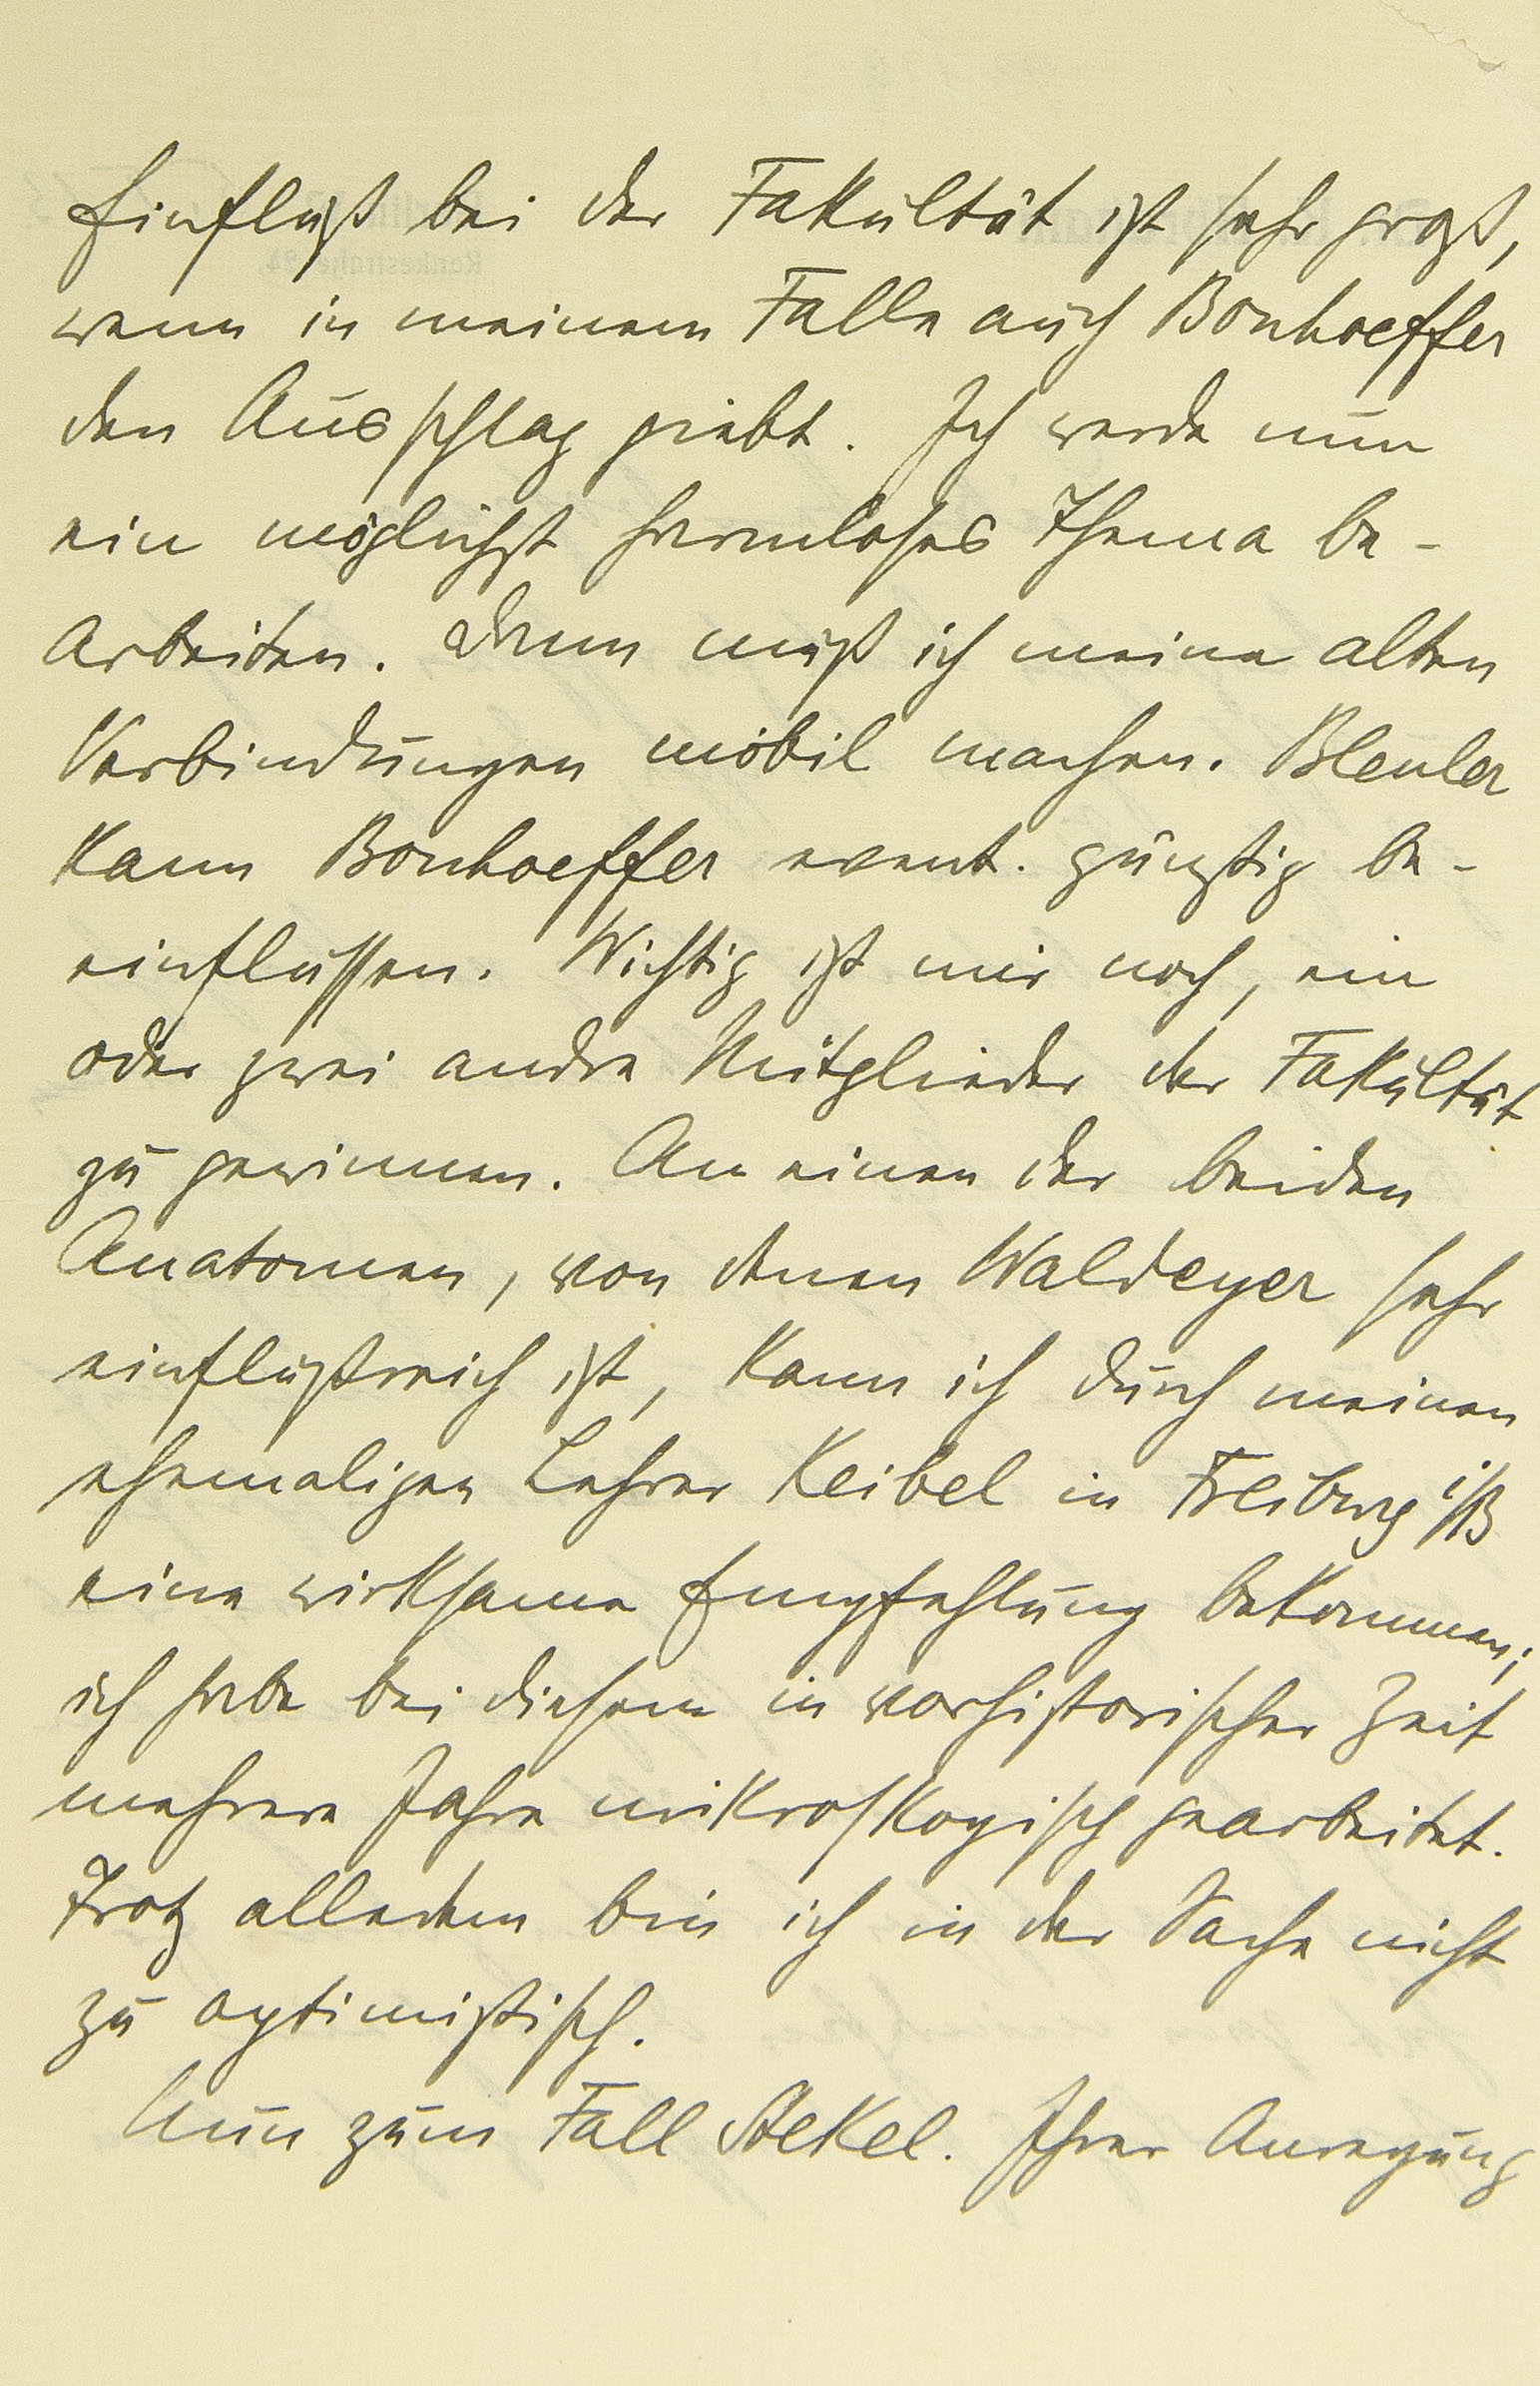 Einfluß bei der Fakultät ist sehr groß,
wenn in meinem Falle auch Bonhoeffer
den Ausschlag giebt. Ich werde nun
ein möglichst harmloses Thema be-
arbeiten. Dann muß ich meine alten
Verbindungen mobil machen. Bleuler
kann Bonhoeffer event. günstig be-
einflussen. Wichtig ist mir noch, ein
oder zwei andre Mitglieder der Fakultät
zu gewinnen. An einen der beiden
Anatomen, von denen Waldeyer sehr
einflußreich ist, kann ich durch meinen
ehemaligen Lehrer Keibel in Freiburg i/B
eine wirksame Empfehlung bekommen;
ich habe bei diesem in vorhistorischer Zeit
mehrere Jahre mikroskopisch gearbeitet.
Trotz alledem bin ich in der Sache nicht
zu optimistisch.
Nun zum Fall Stekel. Ihrer Anregung